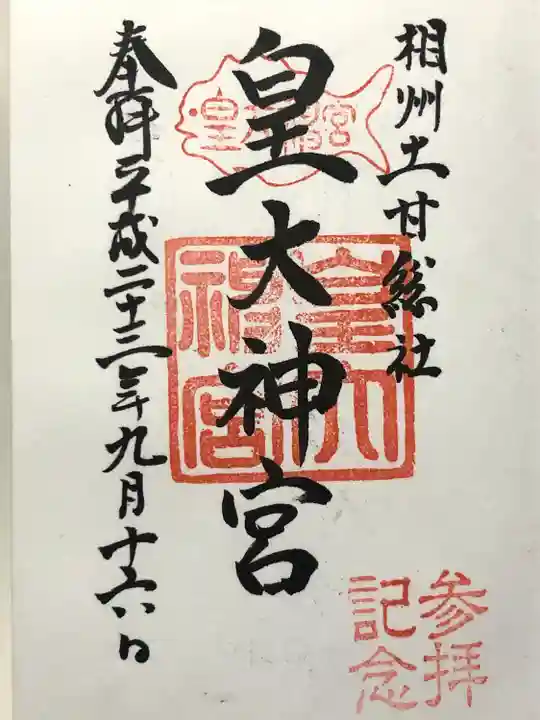 相州土甘総社
皇大神宮
皇大神宮
皇大神宮
奉拝平成二十三年九月十六日
参拝
記念